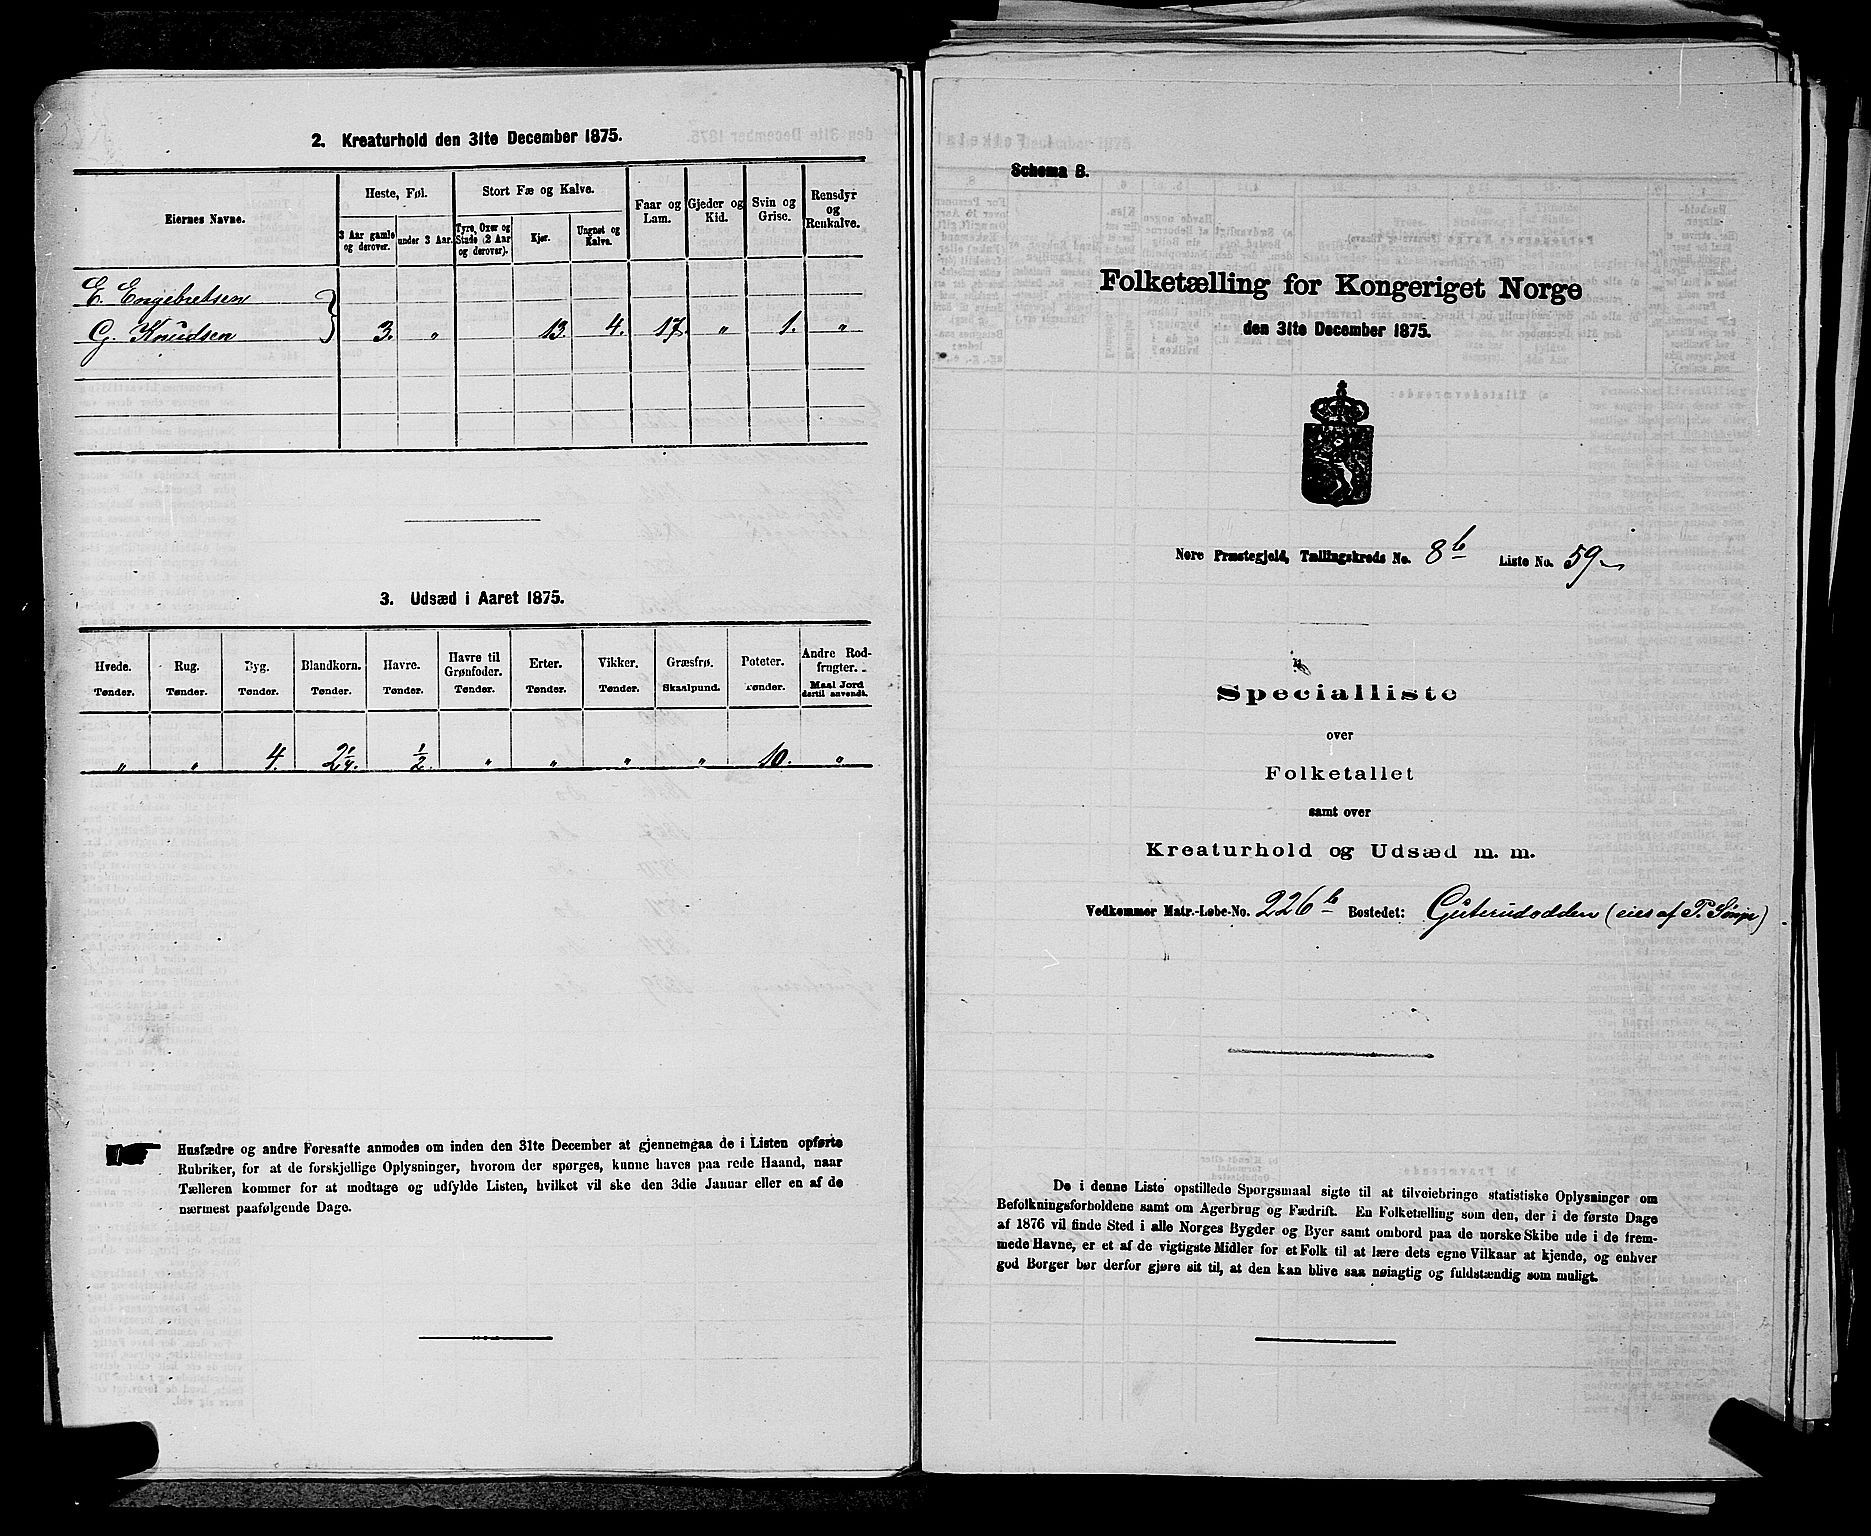 2. Kreaturhold den 31te December 1875.
Eiernes Navne.
Heste, Føl.
Stort Fæ og Kalve.
Faar og Lam.
Gjeder og Kid.
Svin og Grise.
Rensdyr og Renkalve.
3 Aar gamle og derover.
under 3 Aar.
Tyre, Oxer og Stude (2 Aar og derover).
Kjør.
Ungnøt og Kalve.
E. Engebretsen
G. Knudsen } 3. " 13. 4. 17. " 1. "
3. Udsæd i Aaret 1875.
Hvede. Rug. Byg. Blandkorn. Havre. Havre til Grønfoder. Erter. Vikker. Græsfrø. Poteter. Andre Rodfrugter.
Tønder. Tønder. Tønder. Tønder. Tønder. Tønder. Tønder. Tønder. Skaalpund. Tønder. Maal Jord dertil anvendt.
" " 4. 2 1/4. 1/2. " " " " 10. "
Husfædre og andre Foresatte anmodes om inden den 31te December at gjennemgaa de i Listen opførte
Rubriker, for at de forskjellige Oplysninger, hvorom der spørges, kunne haves paa rede Haand, naar
Tælleren kommer for at modtage og udfylde Listen, hvilket vil ske den 3die Januar eller en af de
nærmest paafølgende Dage.
Schema B.
Folketælling for Kongeriget Norge
den 31te December 1875.
Nore Præstegjeld, Tællingskreds No. 8b Liste No. 59
Specialliste
over
Folketallet
samt over
Kreaturhold og Udsæd m. m.
Vedkommer Matr.-Løbe-No. 226b Bostedet: Guterudodden (eies af P. Sønju)
De i denne Liste opstillede Spørgsmaal sigte til at tilveiebringe statistiske Oplysninger om
Befolkningsforholdene samt om Agerbrug og Fædrift. En Folketælling som den, der i de første Dage
af 1876 vil finde Sted i alle Norges Bygder og Byer samt ombord paa de norske Skibe ude i de frem-
mede Havne, er et af de vigtigste Midler for et Folk til at lære dets egne Vilkaar at kjende, og enhver
god Borger bør derfor gjøre sit til, at den kan blive saa nøiagtig og fuldstændig som muligt.